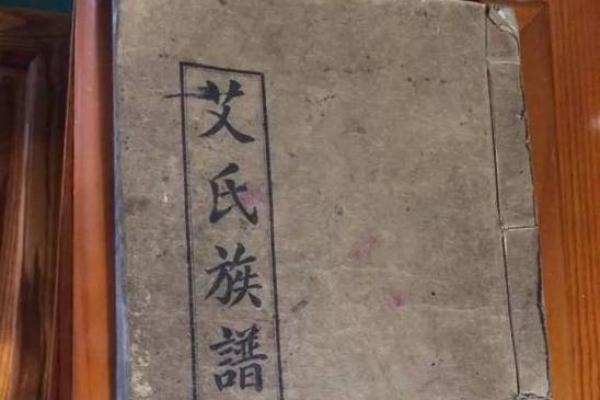 艾氏族譜